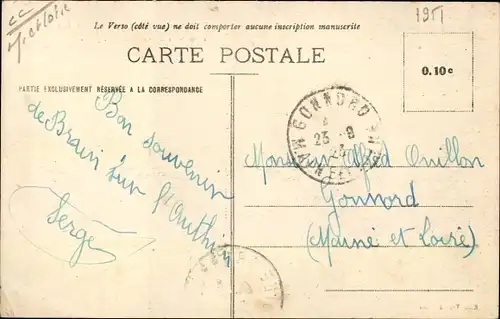 cc
1951
Le Verso (côté vue) ne doit comporter aucune inscription manuscrite
CARTE POSTALE
0.10c
PARTIE EXCLUSIVEMENT RÉSERVÉE A LA CORRESPONDANCE
Bon souvenir
de Brain sur
Serge
GONNORD
23 -9
23
Monsieur Alfred
Gonnord
(Maine et Loire)